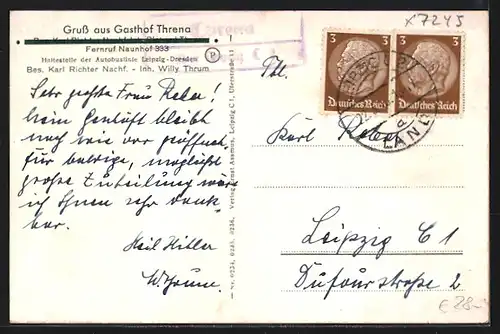 Gruß aus Gasthof Threna
Fernruf Naunhof 333
Haltestelle der Autobuslinie Leipzig-Dresden
Bes. Karl Richter Nachf. - Inh. Willy Thrum
P
x7245
3 3
Deutsches Reich Deutsches Reich
LEIPZIG
LAND
Sehr geehrte Frau Reber!
Mein Geschäft bleibt
nach wie vor geöffnet.
Für baldige, möglichst
große Zuteilung wäre
ich Ihnen sehr dank-
bar.
Heil Hitler
W. Thrum
Verlag Ernst Assmus, Leipzig C 1,
Karl Reber
Leipzig C 1
Dufourstraße 2
€28-